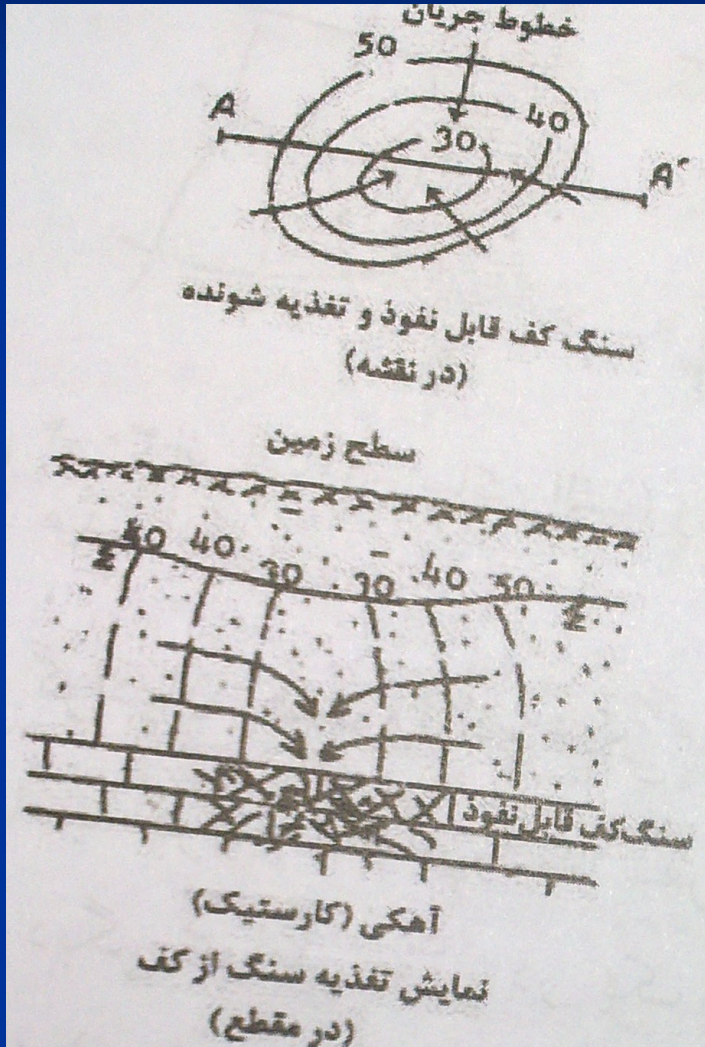 خطوط جریان
50
40
30
A
A'
سنگ کف قابل نفوذ و تغذیه شونده
(در نقشه)
سطح زمین
50 40 30 30 40 50
سنگ کف قابل نفوذ
آهکی (کارستیک)
نمایش تغذیه سنگ از کف
(در مقطع)